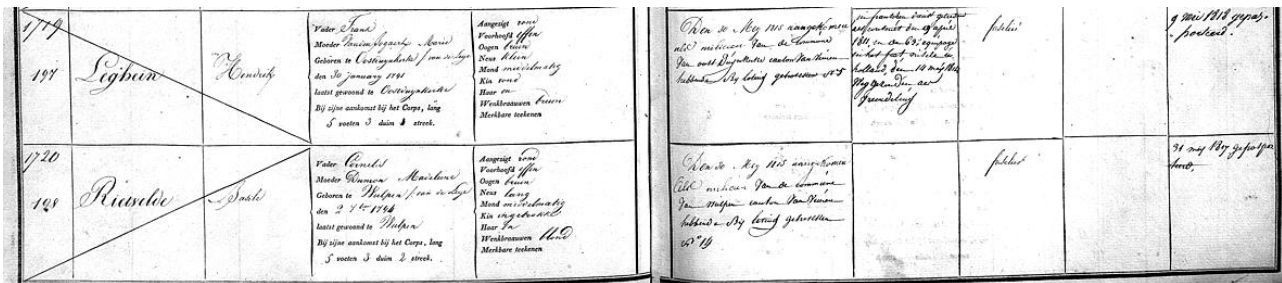 1719
197
Leghein
Hendrik
Vader Frans
Moeder Marie
Geboren te Oostduynkerke / van de Leye
den 30 January 1791
laatst gewoond te Oostduynkerke
Bij zijne aankomst bij het Corps, lang
5 voeten 3 duim streek.
Aangezigt rond
Voorhoofd effen
Oogen bruin
Neus klein
Mond middelmatig
Kin rond
Haar en
Wenkbraauwen bruin
Merkbare teekenen
Den 30 Mey 1815 aangekomen
als milicien van de commune
van canton van
hebbende by loting getrokken N° 5
april
1811, in de 63
in het fort
holland, den 14 mey 1814
als
fuselier
9 mei 1818 gepas-
porteerd.
1720
198
Vader Cornelis
Moeder Dumon Madeleine
Geboren te Wulpen / van de Leye
den 2 1794
laatst gewoond te Wulpen
Bij zijne aankomst bij het Corps, lang
5 voeten 3 duim 2 streek.
Aangezigt rond
Voorhoofd effen
Oogen bruin
Neus lang
Mond middelmatig
Kin
Haar en
Wenkbraauwen blond
Merkbare teekenen
Den 30 Mey 1815 aangekomen
als milicien van de commune
van Wulpen canton van
hebbende by loting getrokken
N° 14
fuselier
31 mey 1817